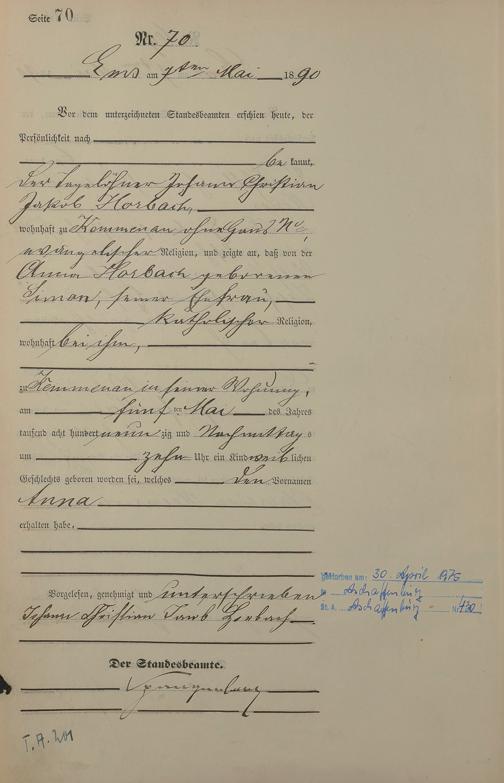 Seite 70
Nr. 70
Ems am 7ten Mai 1890
Vor dem unterzeichneten Standesbeamten erschien heute, der
Persönlichkeit nach
be kannt,
der Tagelöhner Johann Christian
Jakob Horbach,
wohnhaft zu Kemmenau ohne Haus No,
evangelischer Religion, und zeigte an, daß von der
Anna Horbach geborenen
Simon, seiner Ehefrau,
katholischer Religion,
wohnhaft bei ihm,
zu Kemmenau in seiner Wohnung,
am fünf ten Mai des Jahres
tausend acht hundert neun zig und Nachmittags
um zehn Uhr ein Kind weiblichen
Geschlechts geboren worden sei, welches den Vornamen
Anna
erhalten habe.
Vorgelesen, genehmigt und unterschrieben
Johann Christian Jacob Horbach
Der Standesbeamte.
gestorben am: 30. April 1975
in Aschaffenburg
St. A. Aschaffenburg Nr. 430
T.A. 201